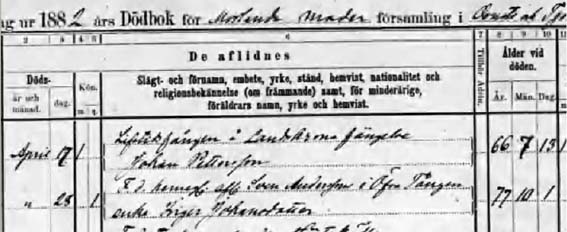 ng ur 1882 års Dödbok för Morlanda Mader församling i
2 3 4 5 6 7 8 9 10 11
De aflidnes
Döds-
år och månad. dag.
Kön.
m q
Slägt- och förnamn, embete, yrke, stånd, hemvist, nationalitet och
religionsbekännelse (om främmande) samt, för minderårige,
föräldrars namn, yrke och hemvist.
Tillhör Adeln.
Ålder vid
döden.
År. Mån. Dag.
Lifstidsfången å Landskrona fängelse
April 17 1 Johan Pettersson 66 7 13
F. d. hemmansegare Sven Andersson i Öfre Tången
" 28 1 enka Inger Johansdotter 77 10 1